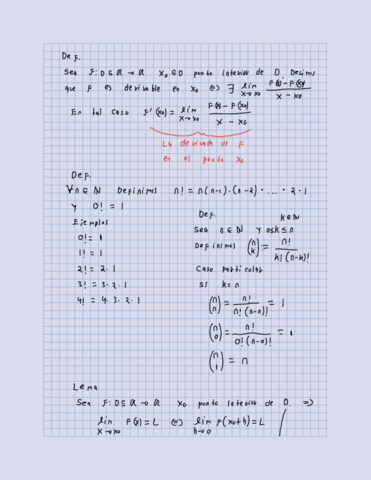 Def.
Sea F: D ⊆ R → R x₀ ∈ D punto interior de D. Decimos
que F es derivable en x₀ ⇔ ∃ lim x→x₀ (F(x) - F(x₀)) / (x - x₀)
En tal caso F'(x₀) = lim x→x₀ (F(x) - F(x₀)) / (x - x₀)
La derivada de F
en el punto x₀
Def.
∀n∈N Definimos n! = n(n-1)·(n-2)· ... ·2·1
y 0! = 1
Ejemplos
0! = 1
1! = 1
2! = 2·1
3! = 3·2·1
4! = 4·3·2·1
Def. k∈N
Sea n∈N y 0≤k≤n
Definimos (n k) := n! / k!(n-k)!
Caso particular
si k=n
(n n) = n! / n!(n-n)! = 1
(n 0) = n! / 0!(n-0)! = 1
(n 1) = n
Lema
Sea F: D ⊆ R → R x₀ punto interior de D. ⇒
lim x→x₀ F(x) = L ⇔ lim h→0 F(x₀+h) = L